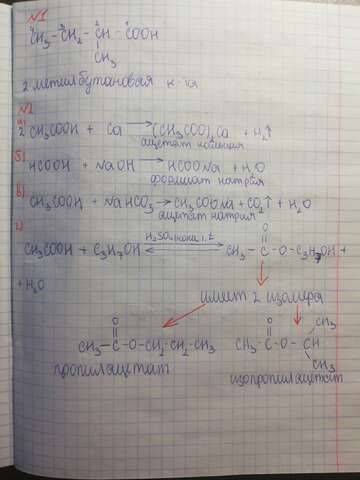 №1
⁴CH₃ - ³CH₂ - ²CH - ¹COOH
|
CH₃
2 метилбутановая к-та
№2
а) 2CH₃COOH + Ca → (CH₃COO)₂Ca + H₂↑
ацетат кальция
б) HCOOH + NaOH → HCOONa + H₂O
формиат натрия
в) CH₃COOH + NaHCO₃ → CH₃COONa + CO₂↑ + H₂O
ацетат натрия
г) H₂SO₄(конц.), t
CH₃COOH + C₃H₇OH ⇄ CH₃ - C(=O) - O - C₃H₇OH +
+ H₂O
имеет 2 изомера
CH₃ - C(=O) - O - CH₂ - CH₂ - CH₃
пропилацетат
CH₃ - C(=O) - O - CH(CH₃)CH₃
изопропилацетат